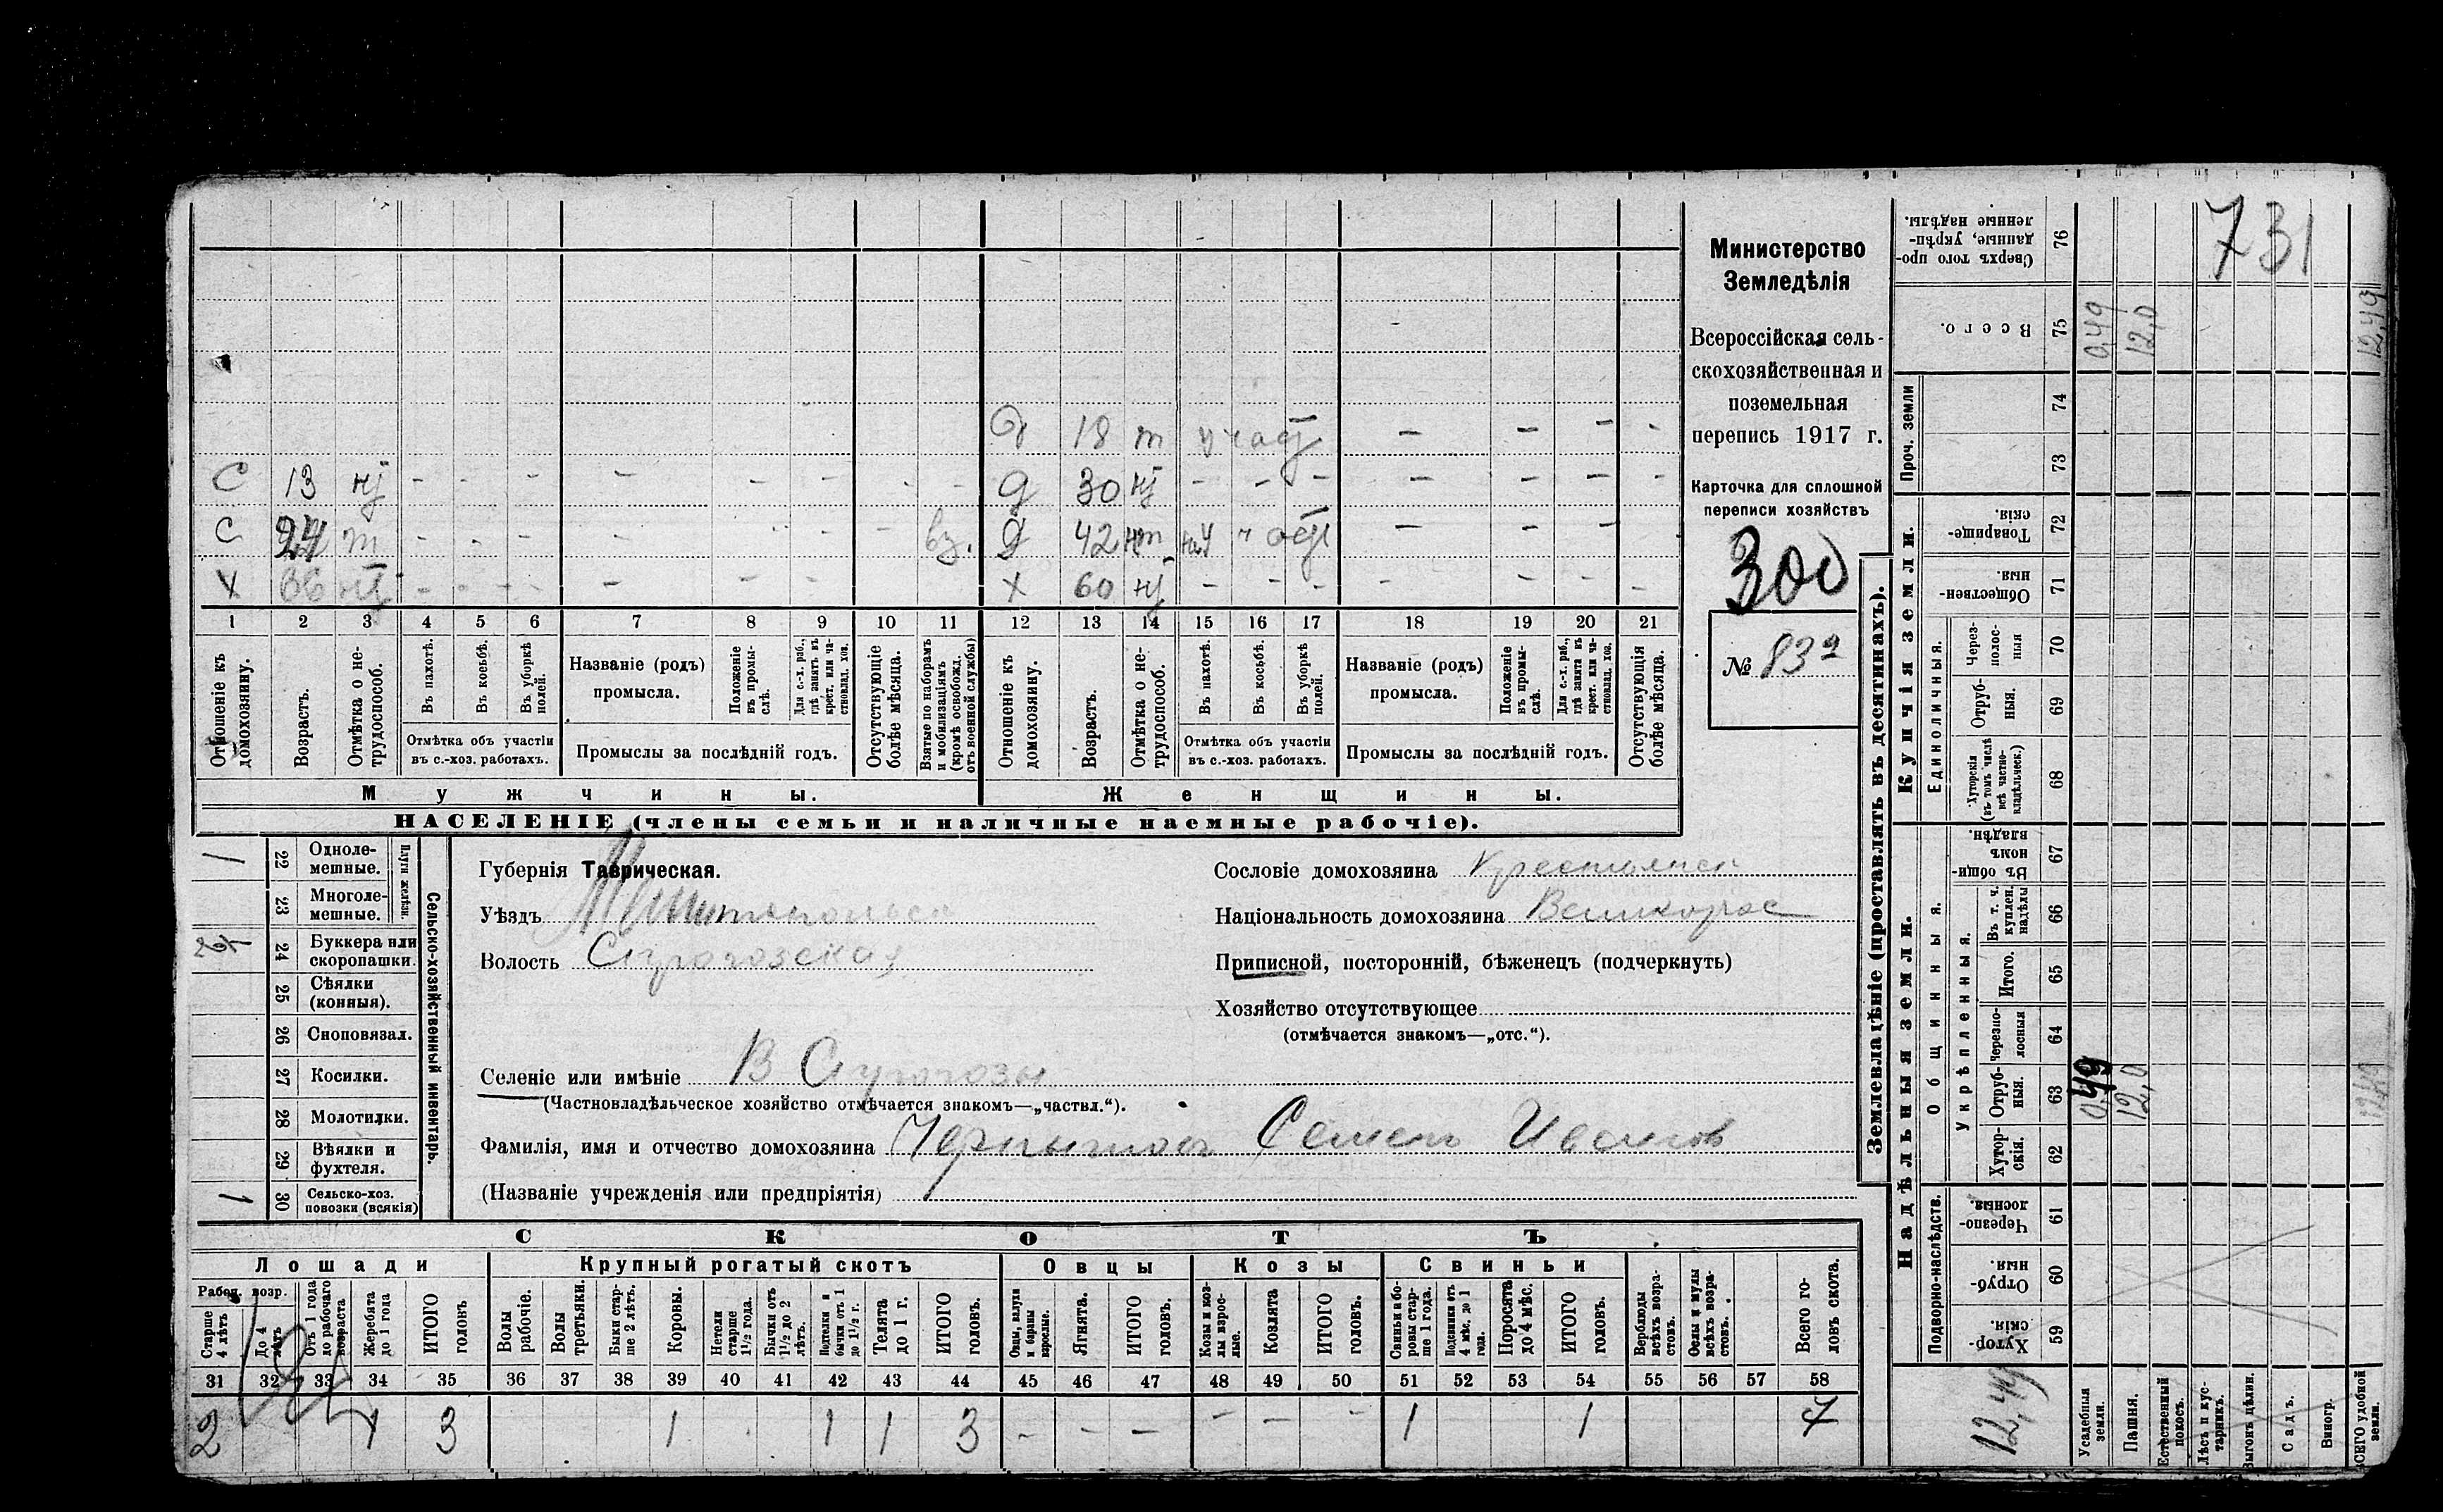 731
Министерство
Земледѣлія
Всероссійская сель-
скохозяйственная и
поземельная
перепись 1917 г.
Карточка для сплошной
переписи хозяйствъ
300
№ 832
18 т участ - - - -
С 13 нт - - - - - - - - Д 30 нт - - - - - - -
С 24 т - - - - - - - вз. Д 42 - - -
Х нт - - - - - - Х 60 нт - - - - - - -
1 2 3 4 5 6 7 8 9 10 11 12 13 14 15 16 17 18 19 20 21
Отношеніе къ домохозяину.
Возрастъ.
Отмѣтка о не-трудоспособ.
Въ пахотѣ.
Въ косьбѣ.
Въ уборкѣ полей.
Отмѣтка объ участіи
въ с.-хоз. работахъ.
Названіе (родъ)
промысла.
Положеніе въ промы-слѣ.
Для с.-х. раб., гдѣ занятъ въ крест. или ча-стновлад. хоз.
Промыслы за послѣдній годъ.
Отсутствующіе болѣе мѣсяца.
Взятые по наборамъ и мобилизаціямъ (кромѣ освобожд. отъ военной службы)
Отношеніе къ домохозяину.
Возрастъ.
Отмѣтка о не-трудоспособ.
Въ пахотѣ.
Въ косьбѣ.
Въ уборкѣ полей.
Отмѣтка объ участіи
въ с.-хоз. работахъ.
Названіе (родъ)
промысла.
Положеніе въ промы-слѣ.
Для с.-х. раб., гдѣ занята въ крест. или ча-стновлад. хоз.
Промыслы за послѣдній годъ.
Отсутствующія болѣе мѣсяца.
Мужчины. Женщины.
НАСЕЛЕНІЕ (члены семьи и наличные наемные рабочіе).
1 22 Одноле-мешные.
23 Многоле-мешные.
Плуги желѣзн.
24 Буккера или скоропашки.
25 Сѣялки (конныя).
26 Сноповязал.
27 Косилки.
28 Молотилки.
29 Вѣялки и фухтеля.
1 30 Сельско-хоз. повозки (всякія)
Сельско-хозяйственный инвентарь.
Губернія Таврическая.
Уѣздъ Мелитопольск
Волость Сѣрогозская
Селеніе или имѣніе В Сѣрогозы
(Частновладѣльческое хозяйство отмѣчается знакомъ—„частвл.“).
Фамилія, имя и отчество домохозяина Семенъ Ивановъ
(Названіе учрежденія или предпріятія)
Сословіе домохозяина Крестьянск
Національность домохозяина Великорос
Приписной, посторонній, бѣженецъ (подчеркнуть)
Хозяйство отсутствующее
(отмѣчается знакомъ—„отс.“).
СКОТЪ
Лошади Крупный рогатый скотъ Овцы Козы Свиньи
Рабоч. возр.
Старше 4 лѣтъ
До 4 лѣтъ
Отъ 1 года до рабочаго возраста
Жеребята до 1 года
ИТОГО головъ
Волы рабочіе.
Волы третьяки.
Быки стар-ше 2 лѣтъ.
Коровы.
Нетели старше 1½ года.
Бычки отъ 1½ до 2 лѣтъ.
Подтелки и бычки отъ 1 до 1½ г.
Телята до 1 г.
ИТОГО головъ.
Овцы, валухи и бараны взрослые.
Ягнята.
ИТОГО головъ.
Козы и коз-лы взрос-лые.
Козлята
ИТОГО головъ.
Свиньи и бо-ровы стар-ше 1 года.
Подсвинки отъ 4 мѣс. до 1 года.
Поросята до 4 мѣс.
ИТОГО головъ.
Верблюды всѣхъ возра-стовъ.
Ослы и мулы всѣхъ возра-стовъ.
Всего го-ловъ скота.
31 32 33 34 35 36 37 38 39 40 41 42 43 44 45 46 47 48 49 50 51 52 53 54 55 56 57 58
2 1 3 1 1 1 3 - - - - - - 1 1 7
Землевладѣніе (проставлять въ десятинахъ).
Купчія земли.
Надѣльныя земли.
Проч. земли
Единоличныя.
Общинныя.
Укрѣпленныя.
Подворно-наслѣдств.
Сверхъ того про-данные, укрѣп-ленные надѣлы. 76
Всего. 75 0,49 12,0 12,49
74
73
Товарище-скія. 72
Обществен-ныя. 71
Через-полос-ныя 70
Отруб-ныя. 69
Хуторскія (въ томъ числѣ всѣ частно-владѣльческ.) 68
Въ общин-номъ владѣн. 67
Въ т. ч. куплен. надѣлы 66
Итого. 65
Черезпо-лосныя 64
Отруб-ныя. 63 0,49 12,0 12,49
Хутор-скія. 62
Черезпо-лосныя 61
Отруб-ныя. 60
Хутор-скія. 59
12,49
Усадебныя земли.
Пашня.
Естественный покосъ.
Лѣсъ и кус-тарникъ.
Выгонъ цѣлин.
Садъ.
Виногр.
ВСЕГО удобной земли.